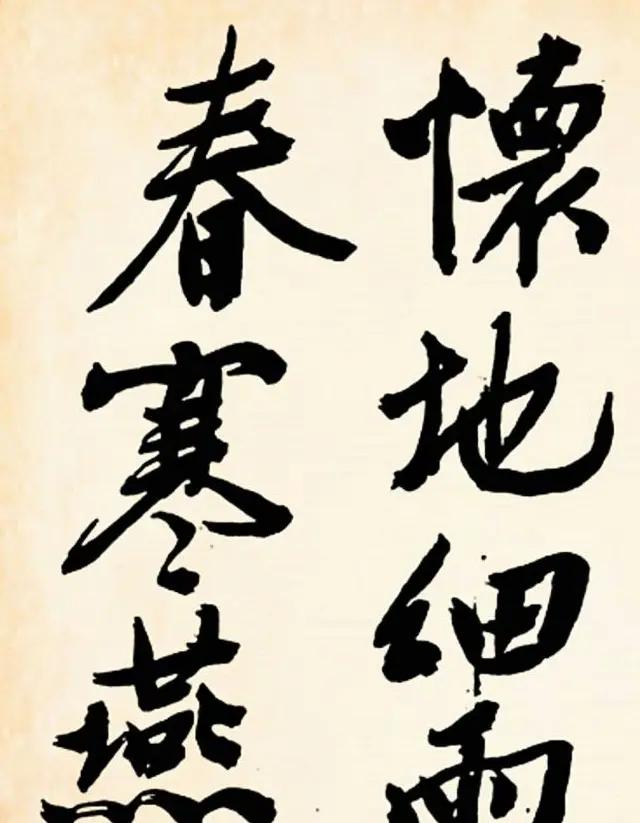 懷地細雨
春寒燕